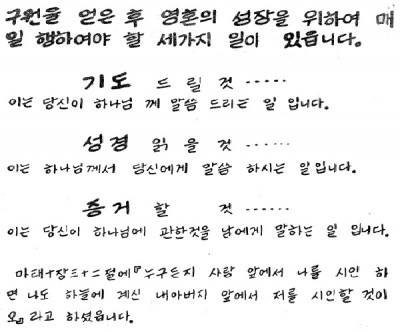 구원을 얻은 후 영혼의 성장을 위하여 매
일 행하여야 할 세가지 일이 있읍니다.
기도 드릴 것 ······
이는 당신이 하나님 께 말씀 드리는 일 입니다.
성경 읽을 것 ······
이는 하나님께서 당신에게 말씀 하시는 일입니다.
증거 할 것 ······
이는 당신이 하나님에 관한것을 남에게 말하는 일 입니다.
마태十장三十二절에『누구든지 사람 앞에서 나를 시인 하
면 나도 하늘에 계신 내아버지 앞에서 저를 시인할 것이
오』라고 하셨읍니다.